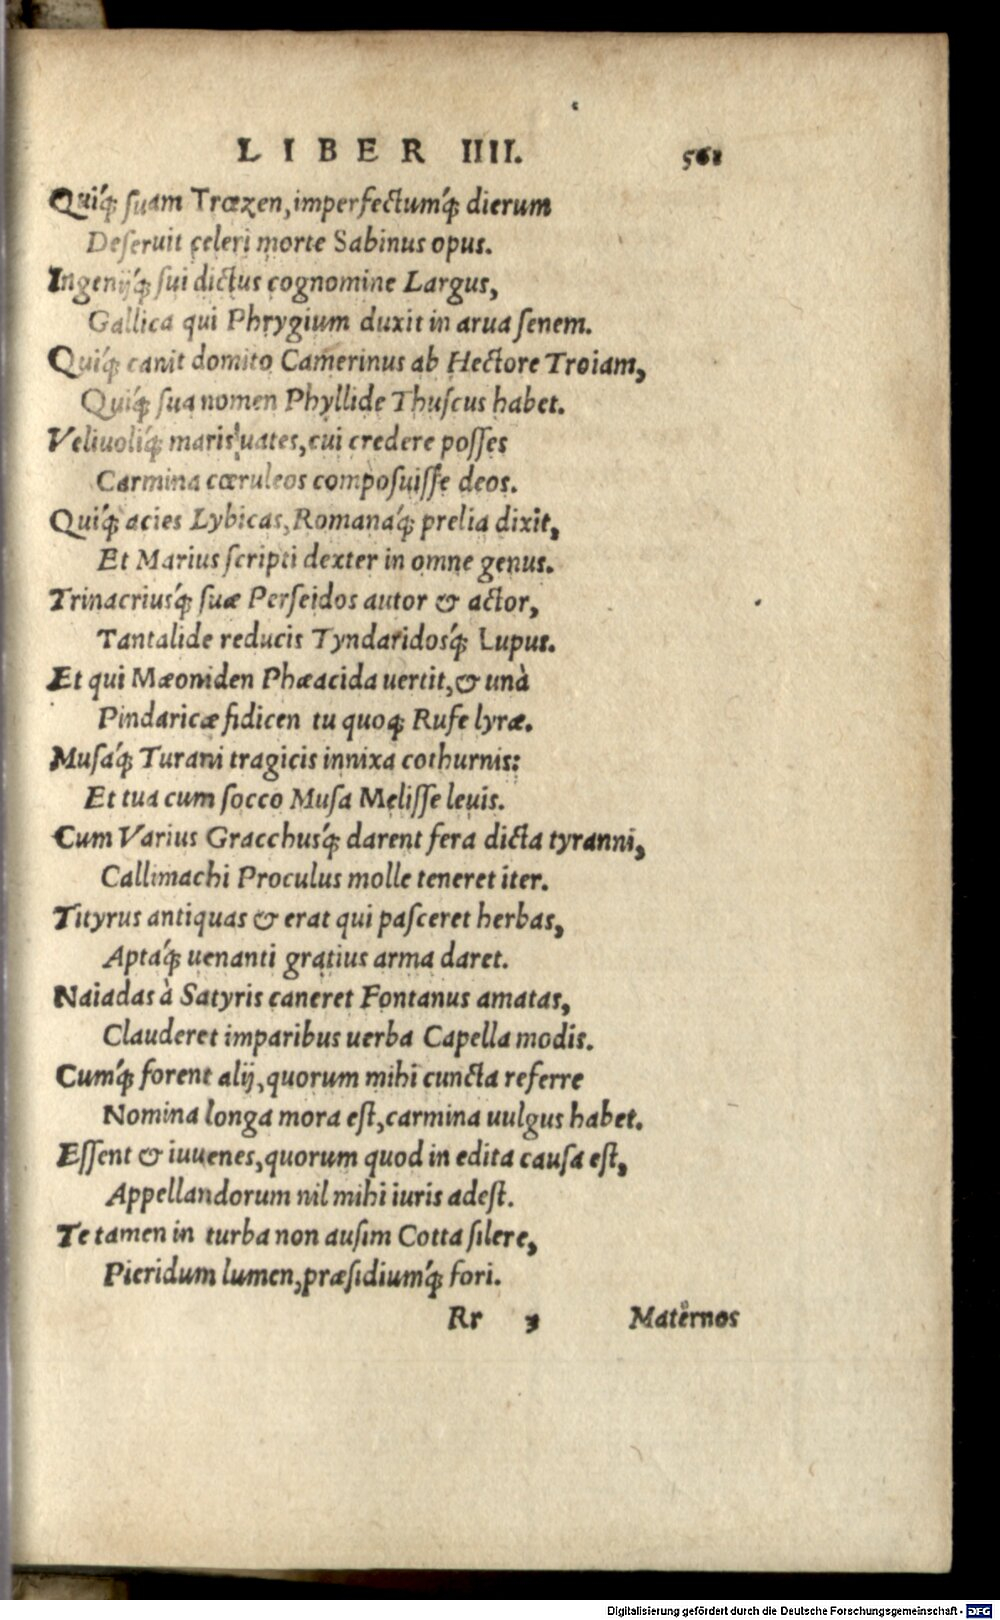 LIBER IIII. 561
Quiq́; ſuam Trœzen, imperfectumq́; dierum
Deſeruit celeri morte Sabinus opus.
Ingenijq́; ſui dictus cognomine Largus,
Gallica qui Phrygium duxit in arua ſenem.
Quiq́; canit domito Camerinus ab Hectore Troiam,
Quiq́; sua nomen Phyllide Thuſcus habet.
Veliuoliq́; maris uates, cui credere poſſes
Carmina cœruleos compoſuiſſe deos.
Quiq́; acies Lybicas, Romanaq́; prelia dixit,
Et Marius ſcripti dexter in omne genus.
Trinacriusq́; ſuæ Perſeidos autor & actor,
Tantalide reducis Tyndaridosq́; Lupus.
Et qui Mæoniden Phæacida uertit, & unà
Pindaricæ fidicen tu quoq; Rufe lyræ.
Muſaq́; Turani tragicis innixa cothurnis:
Et tua cum ſocco Muſa Meliſſe leuis.
Cum Varius Gracchusq́; darent fera dicta tyranni,
Callimachi Proculus molle teneret iter.
Tityrus antiquas & erat qui paſceret herbas,
Aptaq́; uenanti gratius arma daret.
Naiadas à Satyris caneret Fontanus amatas,
Clauderet imparibus uerba Capella modis.
Cumq́; forent alij, quorum mihi cuncta referre
Nomina longa mora eſt, carmina uulgus habet.
Eſſent & iuuenes, quorum quod in edita cauſa eſt,
Appellandorum nil mihi iuris adeſt.
Te tamen in turba non auſim Cotta ſilere,
Pieridum lumen, præſidiumq́; fori.
Rr 3 Maternos
Digitalisierung gefördert durch die Deutsche Forschungsgemeinschaft - DFG